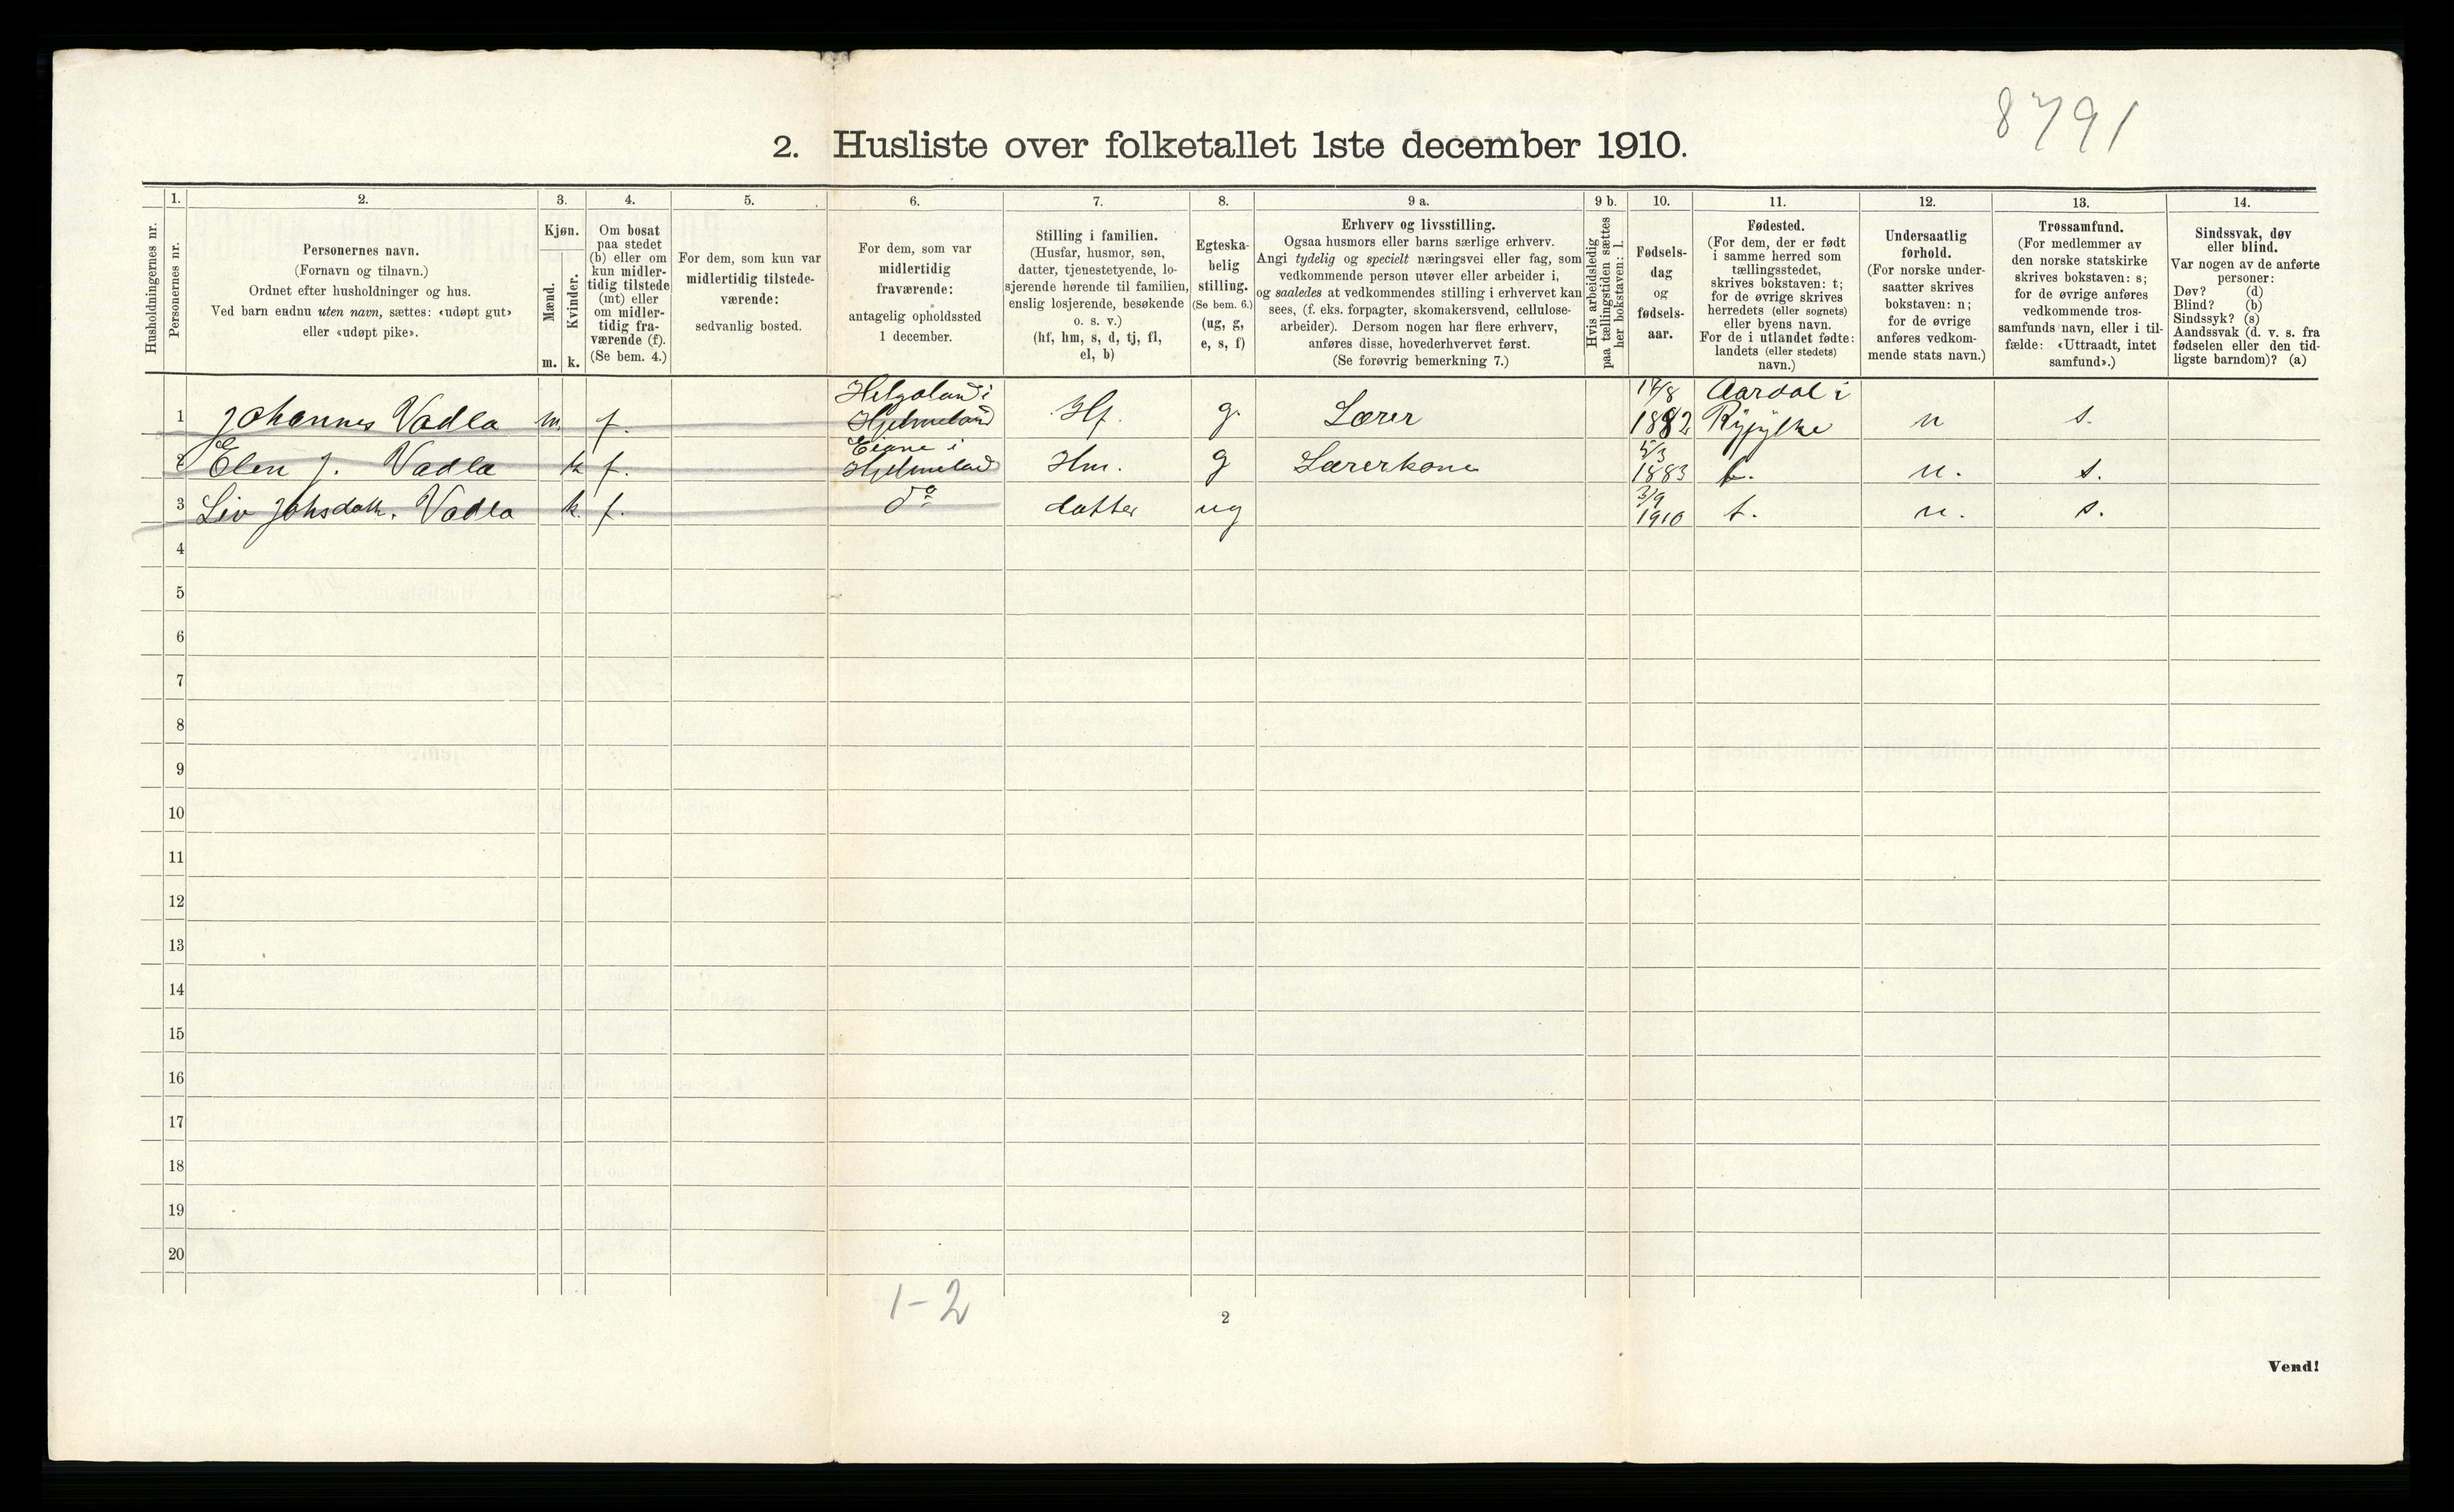 8791
2. Husliste over folketallet 1ste december 1910.
Husholdningernes nr.
1.
Personernes nr.
2.
Personernes navn.
(Fornavn og tilnavn.)
Ordnet efter husholdninger og hus.
Ved barn endnu uten navn, sættes: «udøpt gut»
eller «udøpt pike».
3.
Kjøn.
Mænd.
Kvinder.
m. k.
4.
Om bosat
paa stedet
(b) eller om
kun midler-
tidig tilstede
(mt) eller
om midler-
tidig fra-
værende (f).
(Se bem. 4.)
5.
For dem, som kun var
midlertidig tilstede-
værende:
sedvanlig bosted.
6.
For dem, som var
midlertidig
fraværende:
antagelig opholdssted
1 december.
7.
Stilling i familien.
(Husfar, husmor, søn,
datter, tjenestetyende, lo-
sjerende hørende til familien,
enslig losjerende, besøkende
o. s. v.)
(hf, hm, s, d, tj, fl,
el, b)
8.
Egteska-
belig
stilling.
(Se bem. 6.)
(ug, g,
e, s, f)
9 a.
Erhverv og livsstilling.
Ogsaa husmors eller barns særlige erhverv.
Angi tydelig og specielt næringsvei eller fag, som
vedkommende person utøver eller arbeider i,
og saaledes at vedkommendes stilling i erhvervet kan
sees, (f. eks. forpagter, skomakersvend, cellulose-
arbeider). Dersom nogen har flere erhverv,
anføres disse, hovederhvervet først.
(Se forøvrig bemerkning 7.)
9 b.
Hvis arbeidsledig
paa tællingstiden sættes
her bokstaven: l.
10.
Fødsels-
dag
og
fødsels-
aar.
11.
Fødested.
(For dem, der er født
i samme herred som
tællingsstedet,
skrives bokstaven: t;
for de øvrige skrives
herredets (eller sognets)
eller byens navn.
For de i utlandet fødte:
landets (eller stedets)
navn.)
12.
Undersaatlig
forhold.
(For norske under-
saatter skrives
bokstaven: n;
for de øvrige
anføres vedkom-
mende stats navn.)
13.
Trossamfund.
(For medlemmer av
den norske statskirke
skrives bokstaven: s;
for de øvrige anføres
vedkommende tros-
samfunds navn, eller i til-
fælde: «Uttraadt, intet
samfund».)
14.
Sindssvak, døv
eller blind.
Var nogen av de anførte
personer:
Døv? (d)
Blind? (b)
Sindssyk? (s)
Aandssvak (d. v. s. fra
fødselen eller den tid-
ligste barndom)? (a)
Helgoland i 14/8 Aardal i
1 Johannes Vadla m. f. Hjelmeland Hf. g. Lærer 1882 Ryfylke n s.
Eiane i 5/3
2 Elen J. Vadla k f. Hjelmeland Hm. g Lærerkone 1883 t. n. s.
3/9
3 Liv Johsdatt. Vadla k. f. do datter ug 1910 t. n. s.
4
5
6
7
8
9
10
11
12
13
14
15
16
17
18
19
20
1-2
2
Vend!